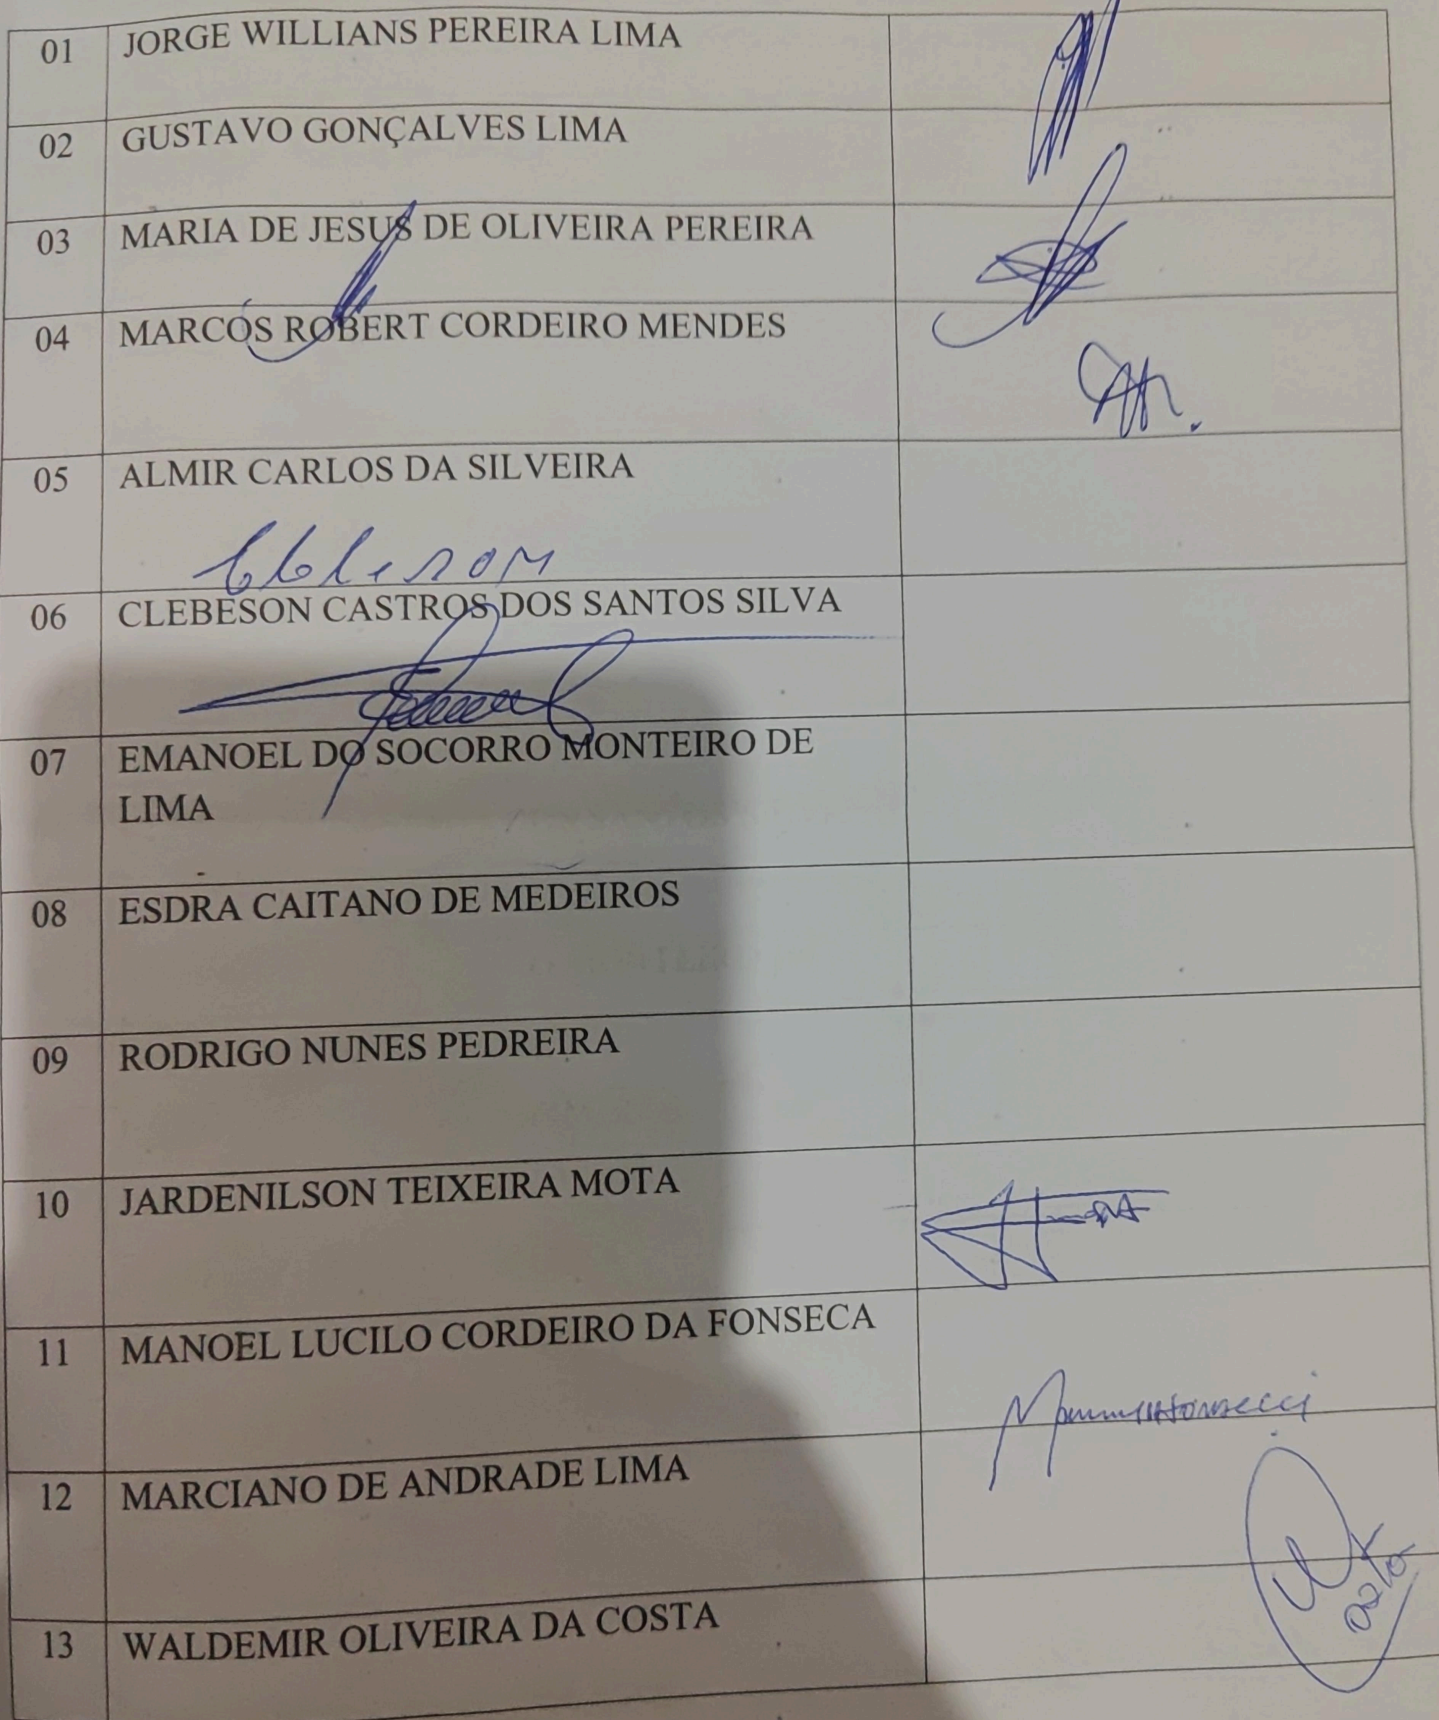 01 JORGE WILLIANS PEREIRA LIMA
02 GUSTAVO GONÇALVES LIMA
03 MARIA DE JESUS DE OLIVEIRA PEREIRA
04 MARCOS ROBERT CORDEIRO MENDES
05 ALMIR CARLOS DA SILVEIRA
06 CLEBESON CASTROS DOS SANTOS SILVA
07 EMANOEL DO SOCORRO MONTEIRO DE
LIMA
08 ESDRA CAITANO DE MEDEIROS
09 RODRIGO NUNES PEDREIRA
10 JARDENILSON TEIXEIRA MOTA
11 MANOEL LUCILO CORDEIRO DA FONSECA
12 MARCIANO DE ANDRADE LIMA
13 WALDEMIR OLIVEIRA DA COSTA